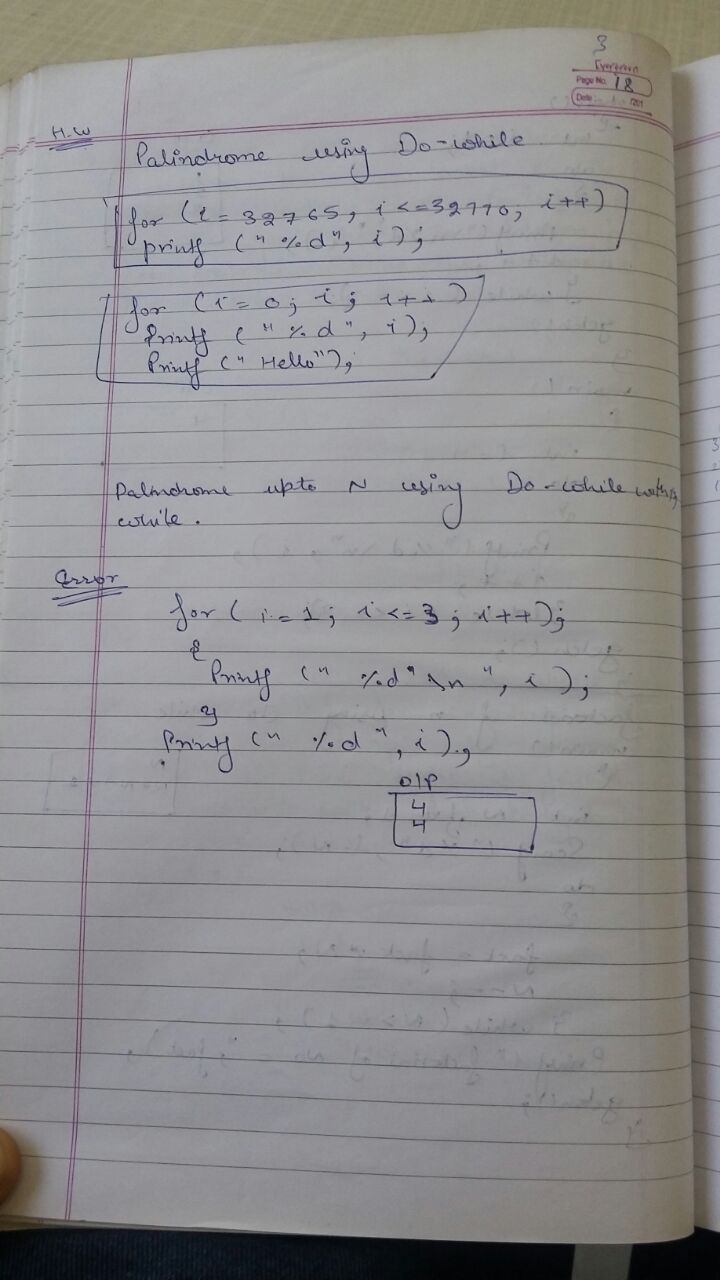 3
Evergreen
Page No. 18
Date: /201
H.W
Palindrome using Do-while
for (i = 32765, i <=32770, i++)
printf (" %d", i);
for (i = 0; i; i++)
Printf (" %d", i);
Printf (" Hello");
Palindrome upto N using Do-while with
while.
Error
for ( i = 1; i <= 3; i++);
{
Printf (" %d" \n ", i );
}
Printf (" %d ", i );
O/P
4
4